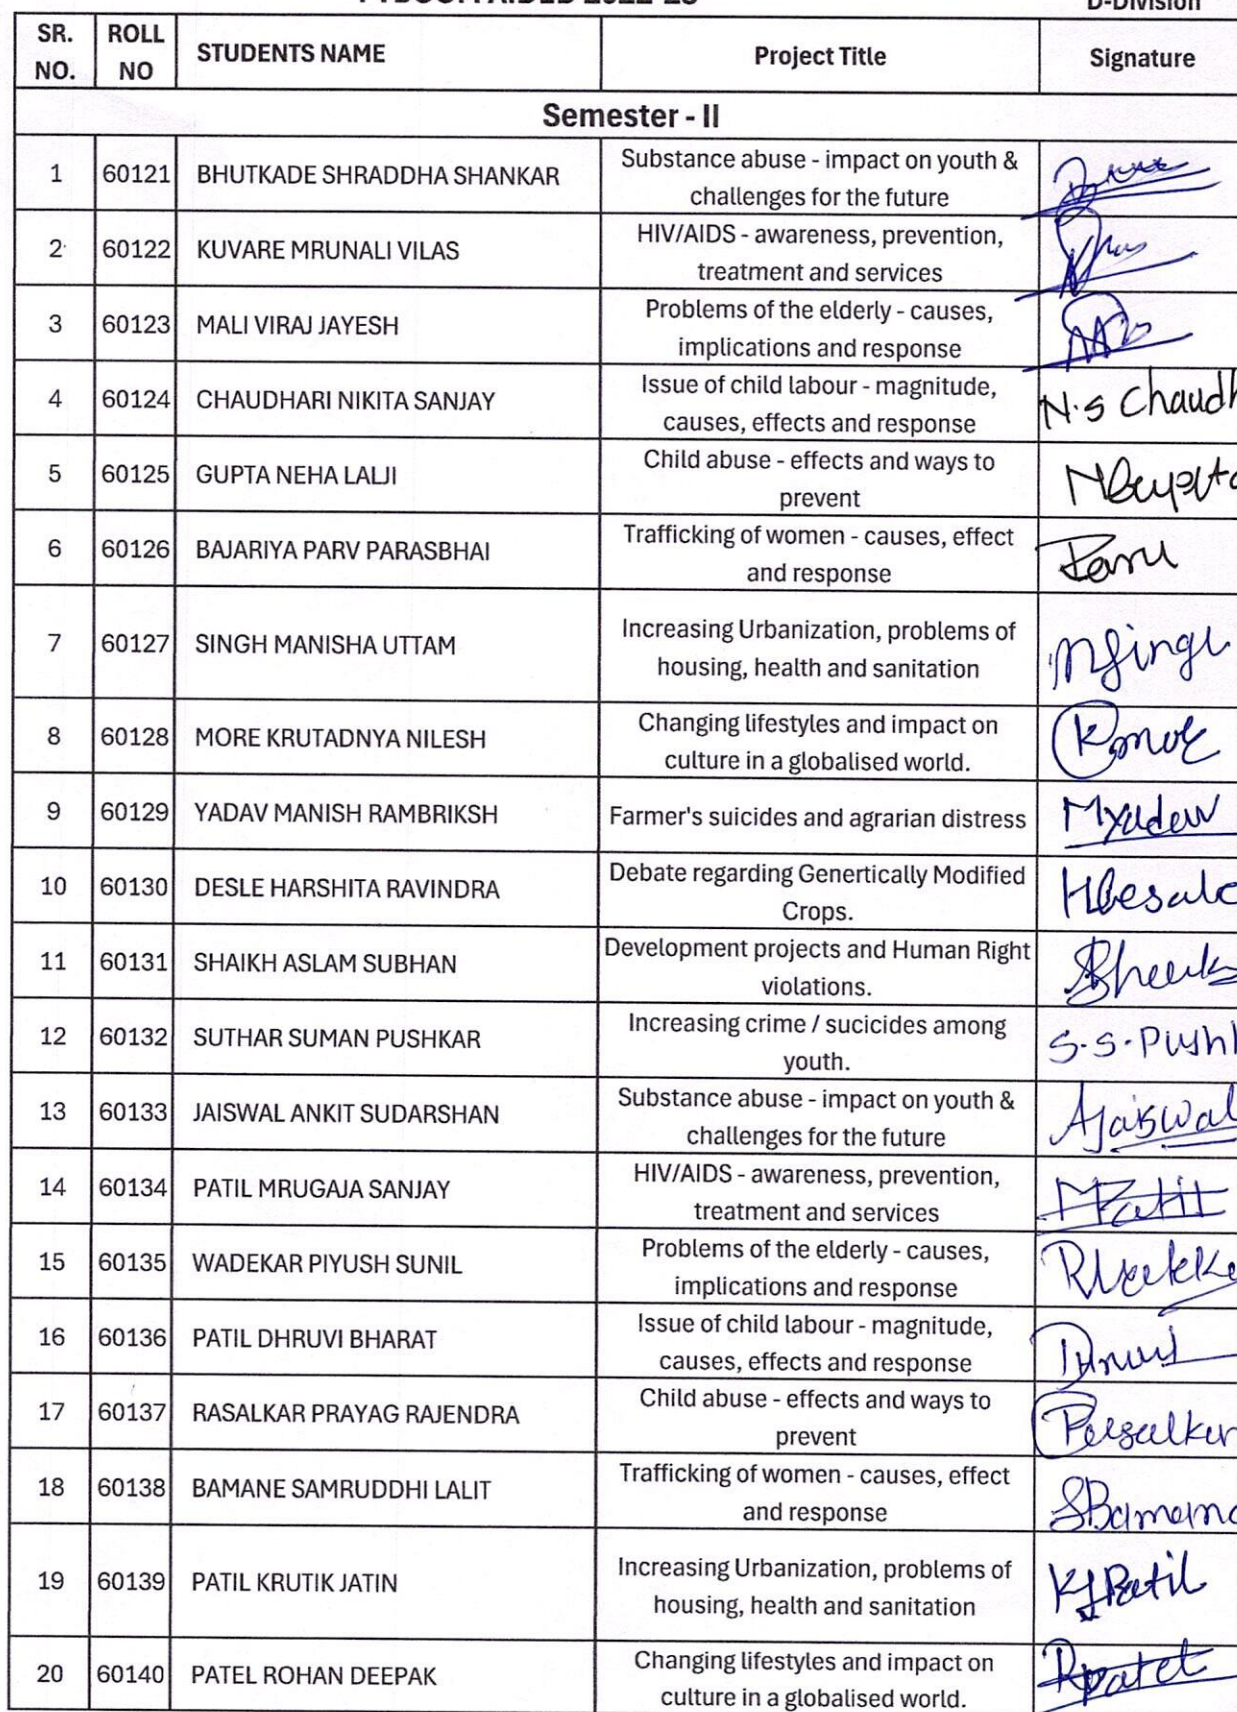 D-Division
SR. NO. ROLL NO STUDENTS NAME Project Title Signature
Semester - II
1 60121 BHUTKADE SHRADDHA SHANKAR Substance abuse - impact on youth &
challenges for the future
2 60122 KUVARE MRUNALI VILAS HIV/AIDS - awareness, prevention,
treatment and services
3 60123 MALI VIRAJ JAYESH Problems of the elderly - causes,
implications and response
4 60124 CHAUDHARI NIKITA SANJAY Issue of child labour - magnitude,
causes, effects and response N.S Chaudh
5 60125 GUPTA NEHA LALJI Child abuse - effects and ways to
prevent NGupta
6 60126 BAJARIYA PARV PARASBHAI Trafficking of women - causes, effect
and response
7 60127 SINGH MANISHA UTTAM Increasing Urbanization, problems of
housing, health and sanitation
8 60128 MORE KRUTADNYA NILESH Changing lifestyles and impact on
culture in a globalised world.
9 60129 YADAV MANISH RAMBRIKSH Farmer's suicides and agrarian distress Myadav
10 60130 DESLE HARSHITA RAVINDRA Debate regarding Genertically Modified
Crops.
11 60131 SHAIKH ASLAM SUBHAN Development projects and Human Right
violations.
12 60132 SUTHAR SUMAN PUSHKAR Increasing crime / sucicides among
youth. S.S.Push
13 60133 JAISWAL ANKIT SUDARSHAN Substance abuse - impact on youth &
challenges for the future AJaiswal
14 60134 PATIL MRUGAJA SANJAY HIV/AIDS - awareness, prevention,
treatment and services MPatil
15 60135 WADEKAR PIYUSH SUNIL Problems of the elderly - causes,
implications and response
16 60136 PATIL DHRUVI BHARAT Issue of child labour - magnitude,
causes, effects and response
17 60137 RASALKAR PRAYAG RAJENDRA Child abuse - effects and ways to
prevent
18 60138 BAMANE SAMRUDDHI LALIT Trafficking of women - causes, effect
and response SBaman
19 60139 PATIL KRUTIK JATIN Increasing Urbanization, problems of
housing, health and sanitation KJPatil
20 60140 PATEL ROHAN DEEPAK Changing lifestyles and impact on
culture in a globalised world. RPatel